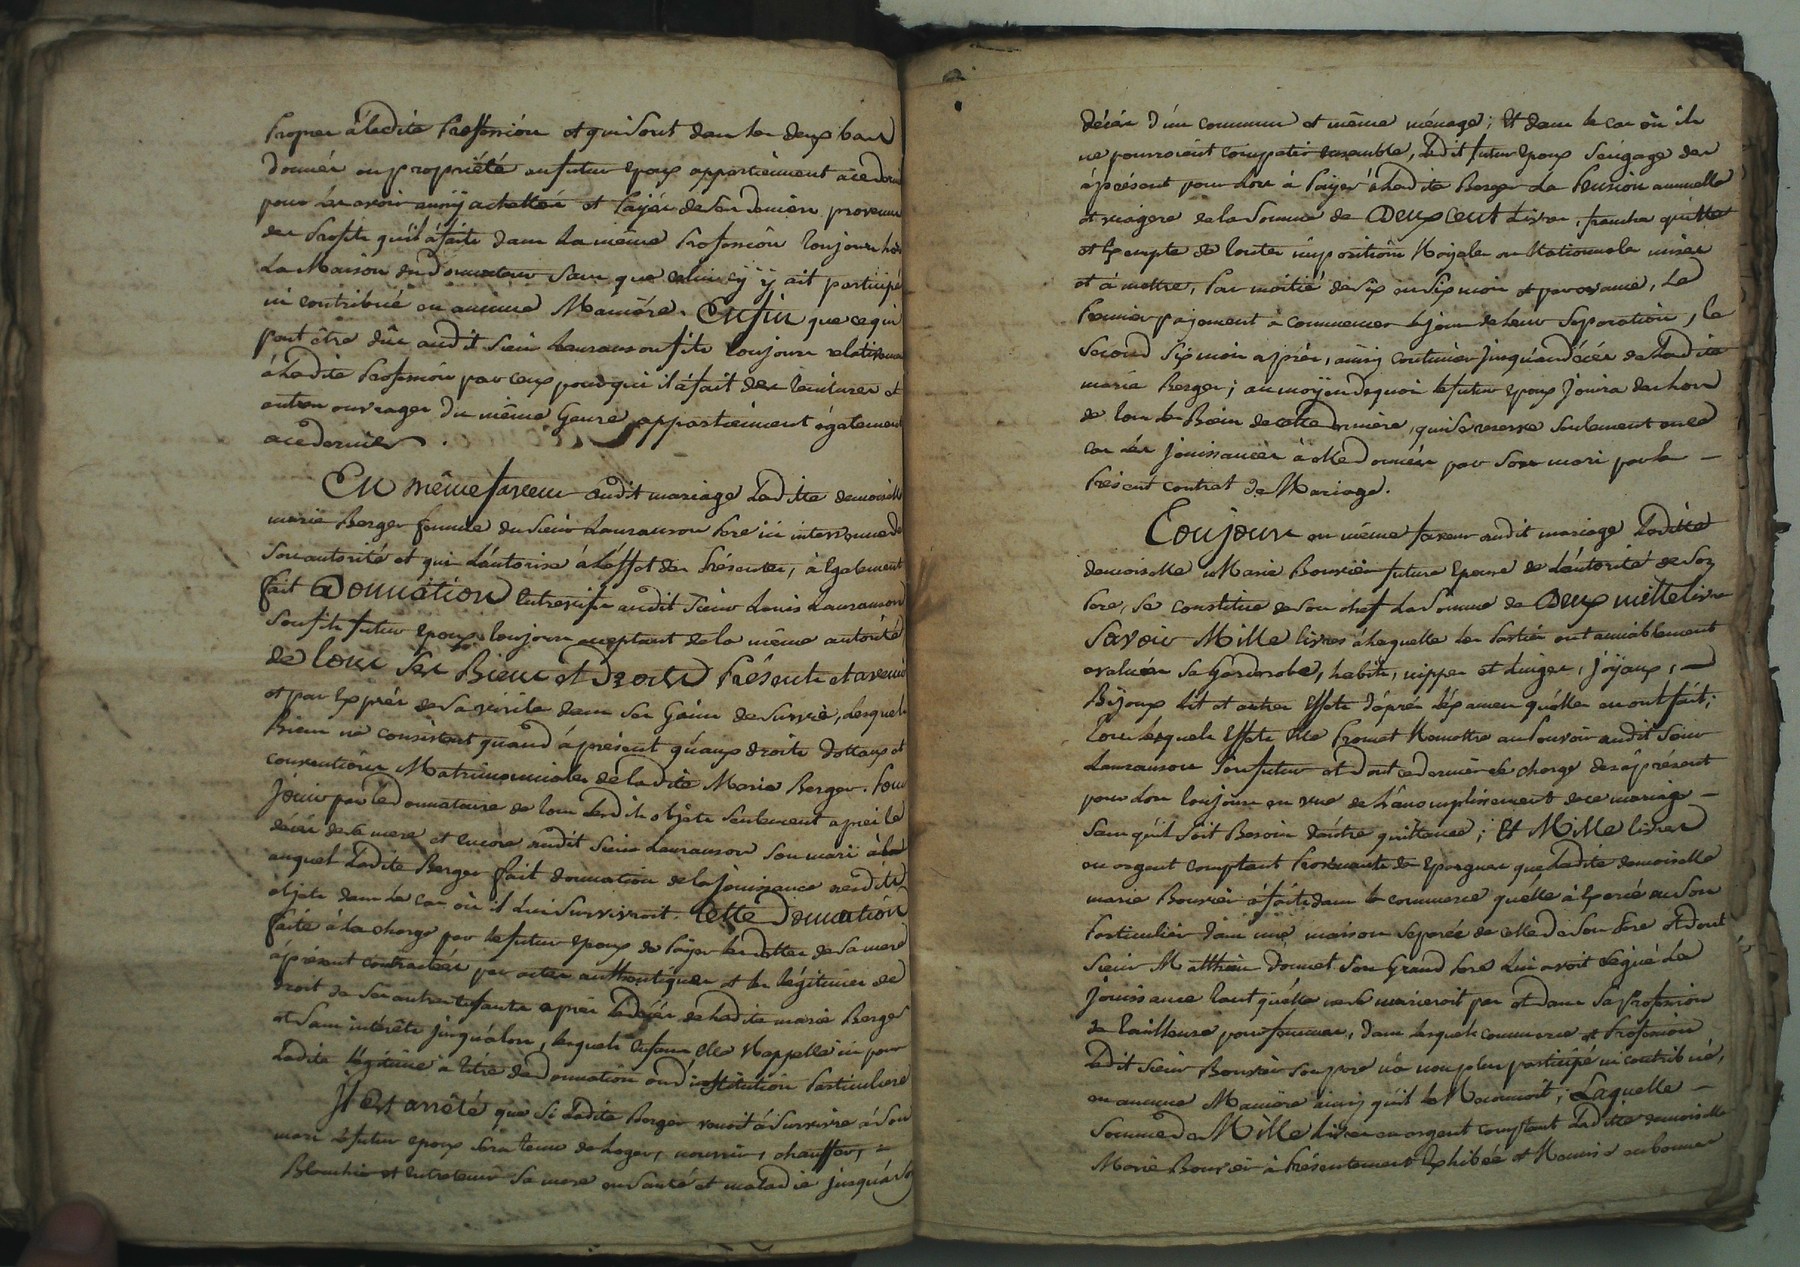 Propres à ladite Proffession et qui sont dans les deux bans
donnés en propriété au futur epoux appartiennent à ce dernier
pour les avoir aussy achettés et payés de ses deniers provenus
des Profits quil à faits dans la même Profession toujours hors
La Maison du Donnateur sans que celui cy y ait participé
ni contribué en aucune Maniére. Enfin que ce qui
peut être dû audit Sieur Lauranson fils toujours relativement
à Ladite Profession par ceux pour qui il à fait des teintures et
autres ouvrages du même Genre appartiennent également
à ce dernier.
En même faveur dudit mariage Laditte demoiselle
marie Berger femme du Sieur Lauranson Pere ici intervenue de
son autorité et qui L'autorise à L'effet des Présentes, à Egalement
fait Donnation Entrevifs audit Sieur Louis Lauranson
son fils futur epoux toujours acceptant de la même autorité
de tous ses Biens et Droits Présents et avenir
et par Exprès de Sa virile dans ses Gains de Survie, desquels
Biens ne consistent quand à présent qu'aux droits dottaux et
conventions Matrimoniales de ladite Marie Berger. Pour
Jouir par Le Donnataire de tous Lesdits objets seulement aprés le
décès de sa mere et encore dudit Sieur Lauranson son mari
auquel Ladite Berger fait donnation de la Jouissance desdits
objets dans Le cas où il Lui Survivroit. Cette Donnation
faite à la charge par le futur epoux de Payer les dettes de sa mere
àprésent contractées par actes authentiques et les légitimes de
droit de ses autres Enfants après Le décès de Ladite marie Berger
et sans intérêts jusqu'alors, lesquels Enfans Elle Rappelle ici pour
Ladite légitime à titre de donnation ou d'institution Particuliere
Il est arrêté que si Ladite Berger venoit à Survivre à Son
mari le futur epoux sera tenu de Loger, nourrir, chauffer,
Blanchir et Entretenir Sa mere en Santé et maladie jusqu'à Son
décès d'un commun et même ménage; Et dans le cas où ils
ne pourroient compatir ensemble, Ledit futur Epoux s'engage dès
àprésent pour Lors à Payer à Ladite Berger La Pension annuelle
et viagere de la Somme de Deux cent Livres, franche quitte
et Exempte de toutes impositions Royales ou Nationnales mises
et à mettre, Par moitié de six en Six mois et par avance, Le
Premier payement à commencer le jour de leur Séparation, le
Second Six mois après, ainsi continuer jusqu'au décès de Ladite
marie Berger; au moÿen de quoi le futur epoux Jouira des Lors
de tous les Biens de cette derniére, qui se reserve seulement en ce
cas Les Jouissances à elle données par Son mari par le
Présent contrat de Mariage.
Toujours en même faveur audit mariage Laditte
demoiselle Marie Bouvier future Epouse de L'autorité de son
Pere, se constitue de Son chef La Somme de Deux mille Livres
Savoir Mille livres à laquelle les Parties ont amiablement
evaluées sa Garderobe, habits, nippes et Linges, Joÿaux,
Bijoux Lit et autres Effets d'après L'éxamen qu'elles en ont fait;
Tous lesquels Effets Elle Promet Remettre au Pouvoir audit Sieur
Lauranson son futur et dont ce dernier se charge des àprésent
pour Lors toujours en vue de L'accomplissement de ce mariage
Sans qu'il soit Besoin d'autre quittance; Et Mille livres
en argent comptant Provenante des Epargnes que Ladite demoiselle
marie Bouvier à faits dans le commerce quelle à Exercé en Son
Particulier dans une maison séparée de celle de Son Pere et dont
Sieur Matthieu Donnet Son Grand Pere Lui avoit Légué La
Jouissance tant qu'elle ne se marieroit pas et dans Sa Profession
de tailleuse pour femmes, dans lesquels commerce et Profession
Ledit Sieur Bouvier son pere n'à non plus participé ni contribué,
en aucune Maniére ainsi qu'il le Reconnoit; Laquelle
Somme de Mille Livres en argent comptant Laditte demoiselle
Marie Bouvier à Présentement Exhibée et Remise en bonnes